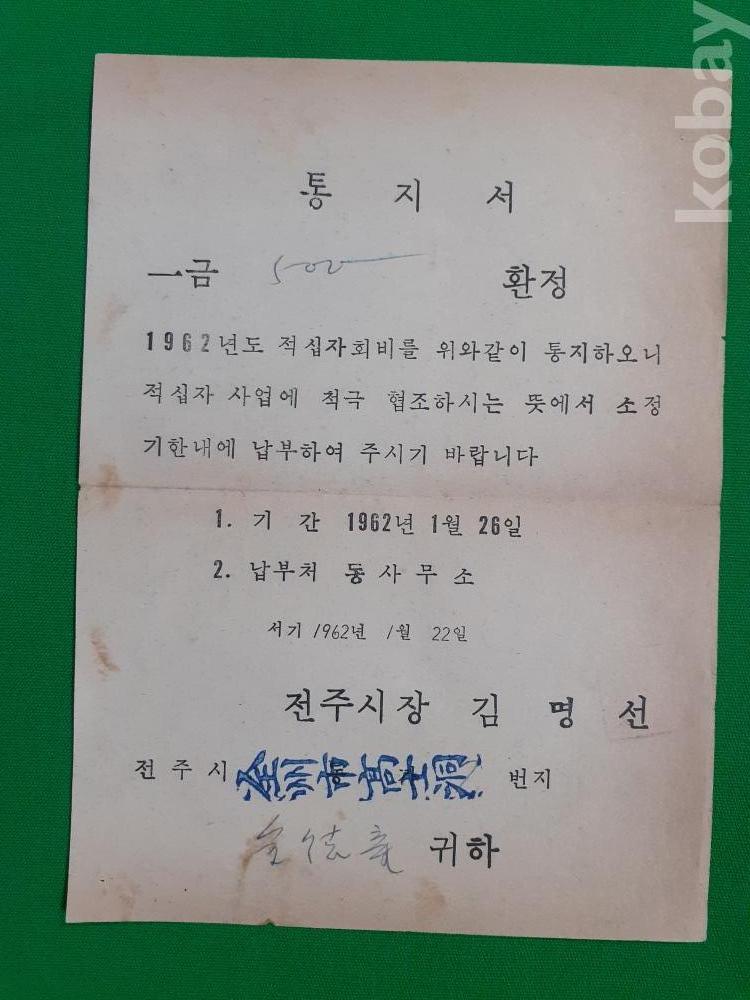 kobay
통 지 서
一금 500 환정
1962년도 적십자회비를 위와같이 통지하오니
적십자 사업에 적극 협조하시는 뜻에서 소정
기한내에 납부하여 주시기 바랍니다
1. 기 간 1962년 1월 26일
2. 납부처 동사무소
서기 1962년 1월 22일
전주시장 김 명 선
전주시 번지
귀하